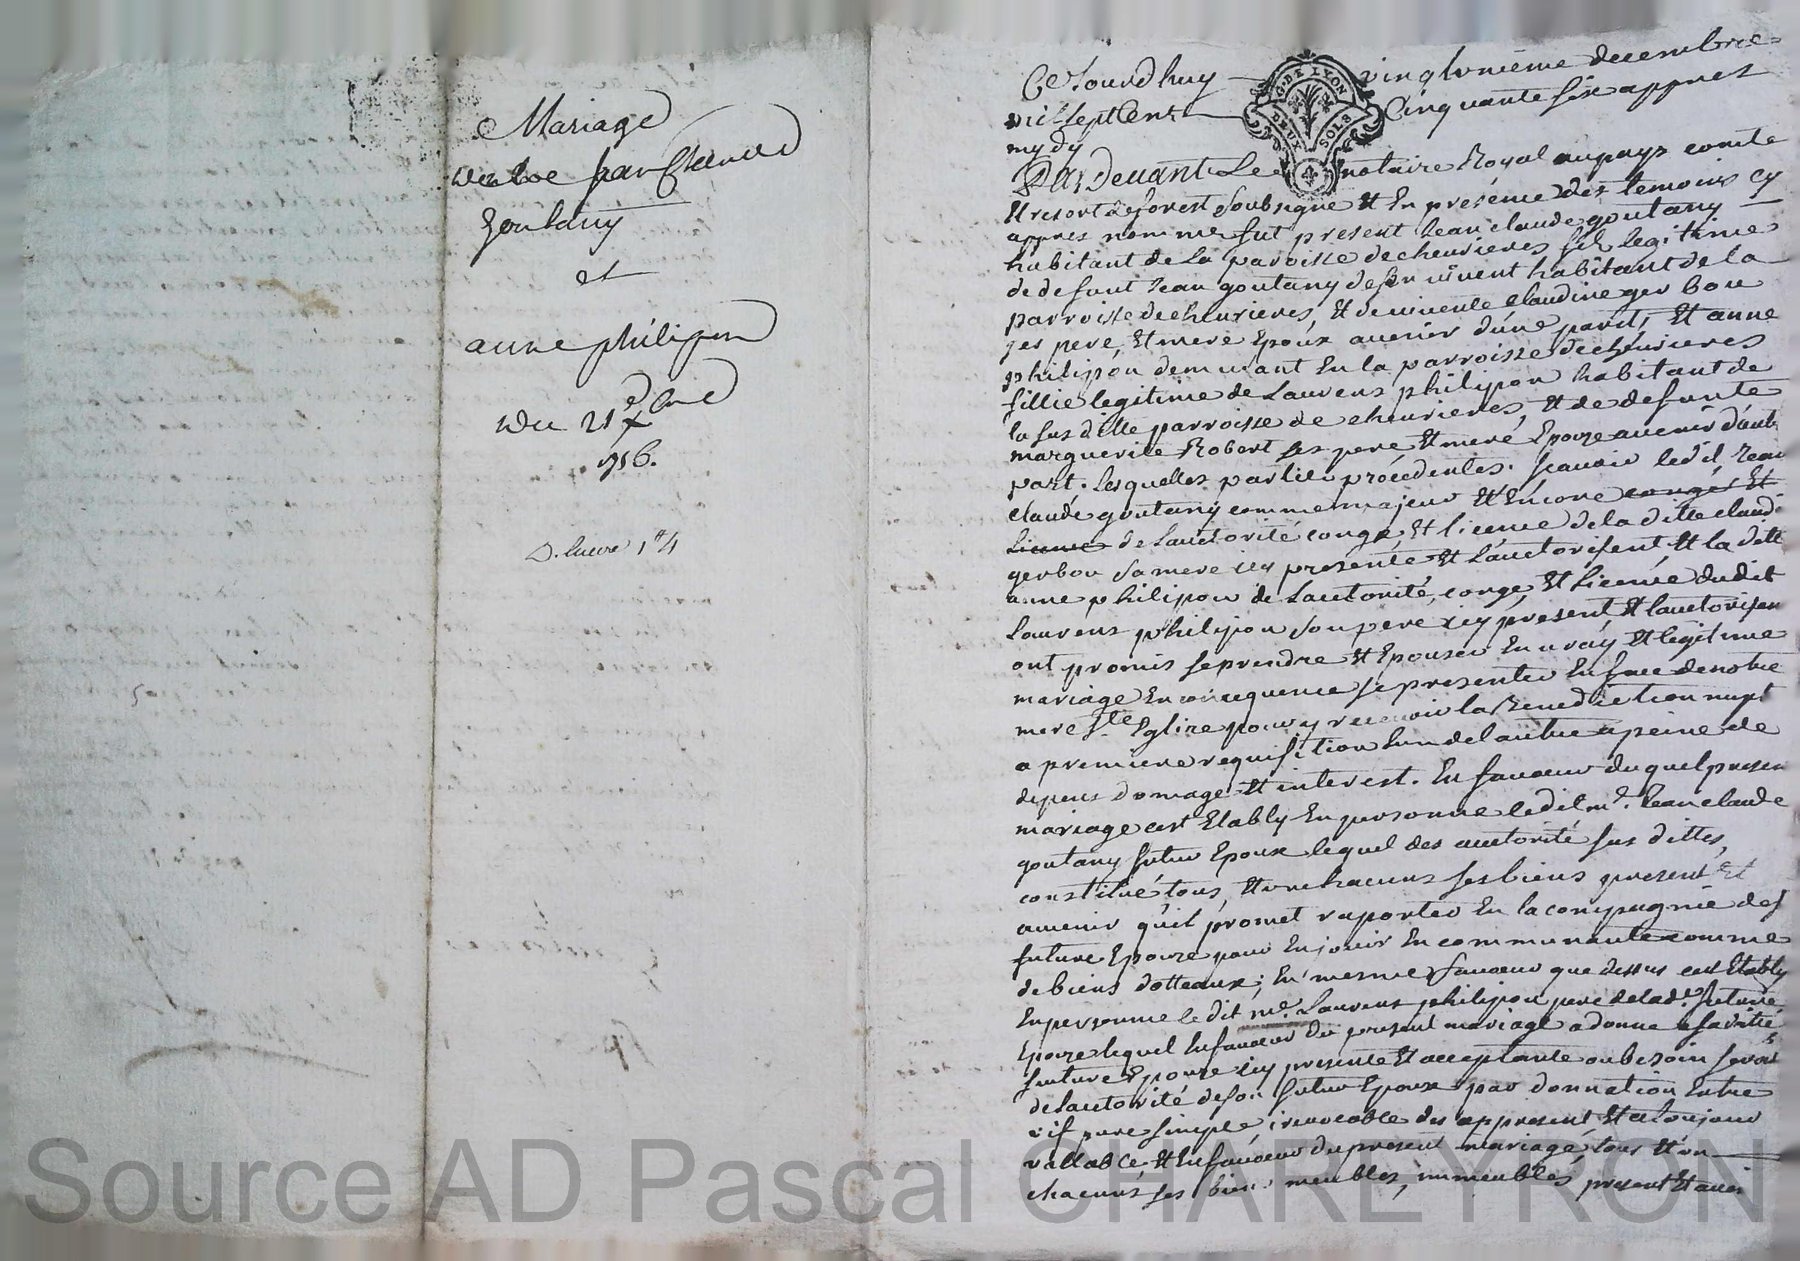 Mariage
Goutany
et
anne philipon
Du 21 Xbre
1756.
Ce Jourdhuy vingtunième decembre
mil sept Cent Cinquante six appres
mydy
G. DE LYON
DEUX SOLS
Pardevant Le notaire Royal au pays comté
Et resort de forest soubsigné Et En présence des temoins cy
appres nommé fut present Jean claude goutany
habitant de La paroisse de chevrieres fils legitime
de defunt Jean goutany de son vivent habitant de la
parroisse de chevrieres, Et de vivente Claudine gerbou
ses pere, Et mere Epoux avenir d'une part, Et anne
philipon demurant En la parroisse de chevrieres
fillie legitime de Laurens philipon habitant de
la susditte parroisse de chevrieres, Et de defunte
marguerite Robert ses pere Et meré Epouze avenir d'autr
part. Lesquelles parties procedentes. scavoir ledit Jean
claude goutany comme majeur Et Encore congé Et
Licence de Lautorité congé, Et licence de la ditte claudi
gerbou sa mere icy presente Et Lauctorisent Et la ditt
anne philipon de Lauctorité, congé Et Licence dudit
Laurens philipon son pere icy present Et lauctorisen
ont promis se prendre Et Epouser En vray Et légitime
mariage En consequence se presenter En face de notre
mere Ste Eglize pour y recevoir la Benediction nupt
a premiere requisition lun de lautre a peine de
depens domage Et interest. En faveur duquel presen
mariage cest Etably En personne ledit me. Jean claude
goutany futur Epoux lequel des auctorité sus dittes,
constitué tous, Et un chacuns ses biens present Et
avenir qu'il promet raporter En la compagnie de s
future Epouze pour En jouir En communauté comme
de biens dotteaux; En mesme faveur que dessus cest Etably
En personne le dit me. Laurens philipon pere de lad. future
Epouze lequel En faveur du present mariage a donné a sa ditte
future Epouze icy presente Et acceptante ou besoin seroit
de lautorité de son futur Epoux par donnation Entre
vif pure simple irrevocable des appresent Et a toujour
vallable Et En faveur du present mariage tous Et un
chacuns ses biens meubles, immeubles present Et aveni
Source AD Pascal CHAREYRON